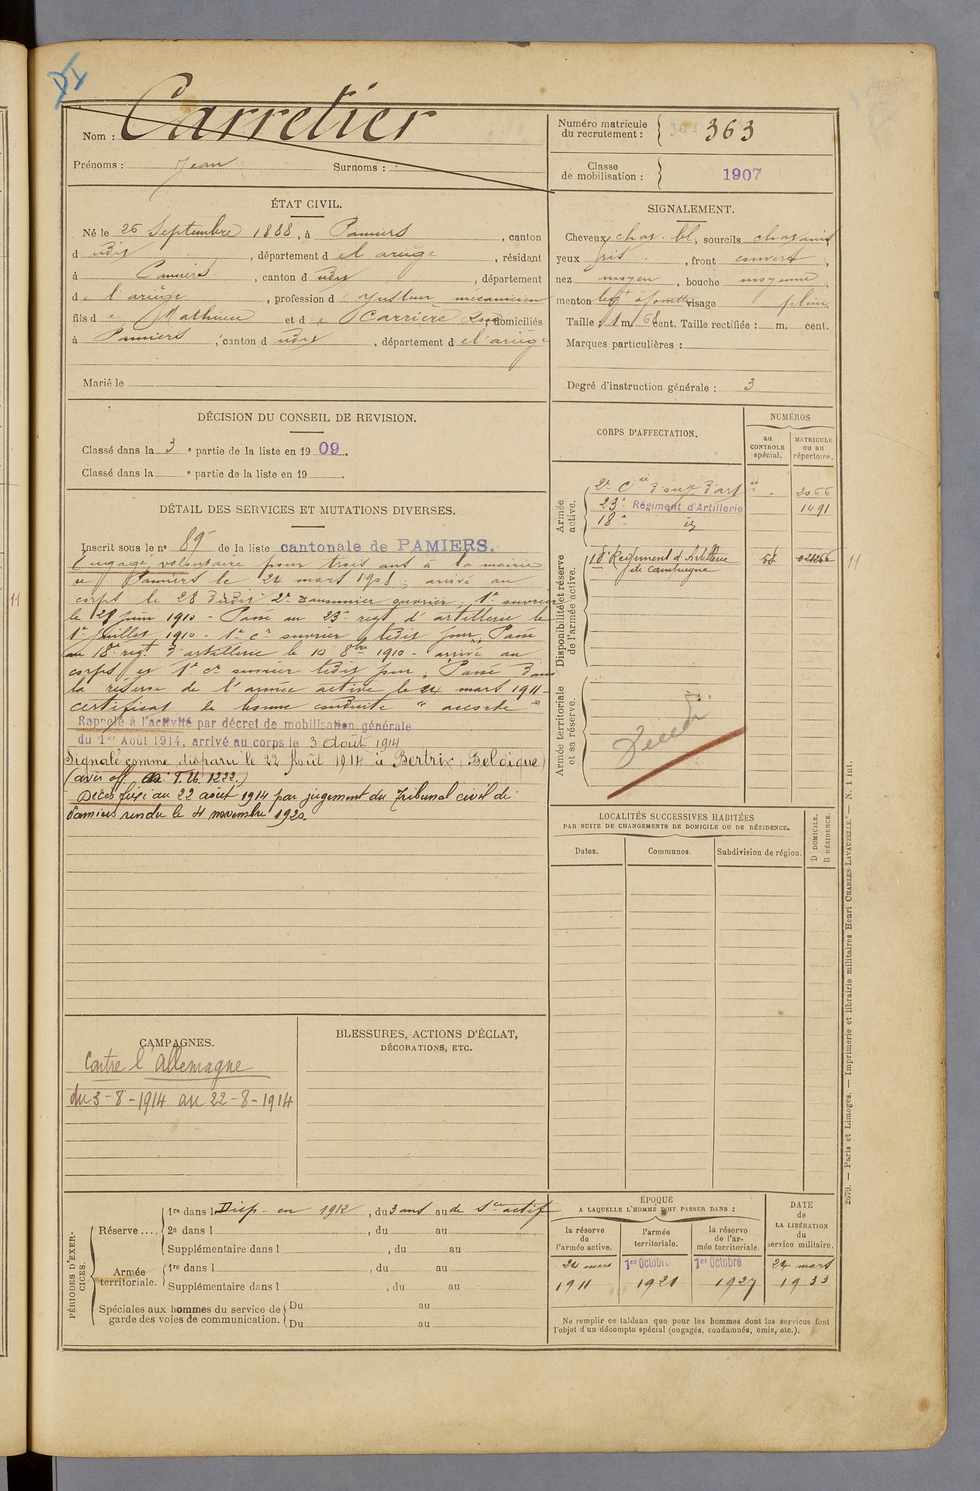 Nom : Carretier
Prénoms : Jean Surnoms :
Numéro matricule du recrutement : 363
Classe de mobilisation : 1907
ÉTAT CIVIL.
Né le 26 Septembre 1888, à Pamiers, canton
d udit, département d el ariège, résidant
à Pamiers, canton d udit, département
d e l'ariège, profession d mecanicien
fils d e Mathieu et d e Carrière, domiciliés
à Pamiers, canton d udit, département d el'ariège
Marié le
SIGNALEMENT.
Cheveux chat. bl, sourcils chatains
yeux gris, front couvert,
nez moyen, bouche moyenne,
menton à fossette visage plein
Taille : 1 m 68 cent. Taille rectifiée : m. cent.
Marques particulières :
Degré d'instruction générale : 3
DÉCISION DU CONSEIL DE REVISION.
Classé dans la 3 e partie de la liste en 19 09.
Classé dans la e partie de la liste en 19
DÉTAIL DES SERVICES ET MUTATIONS DIVERSES.
Inscrit sous le no 85 de la liste cantonale de PAMIERS.
Engagé volontaire pour trois ans à la mairie
de Pamiers le 24 mars 1908 : arrivé au
corps le 28 dudit 2e canonnier ouvrier. 1e ouvrier
le 28 juin 1910 - Passé au 23e regt d'artillerie le
1er Juillet 1910 - 1e cr ouvrier ledit jour. Passé
au 18e regt d'artillerie le 10 8bre 1910 - arrivé au
corps et 1e cr ouvrier ledit jour. Passé dans
la réserve de l'armée active le 24 mars 1911
certificat de bonne conduite "accordé"
Rappelé à l'activité par décret de mobilisation générale
du 1er Août 1914, arrivé au corps le 3 Août 1914
Signalé comme disparu le 22 Août 1914 à Bertrix (Belgique)
(avis off. T. U. 1222.)
Décès fixé au 22 août 1914 par jugement du Tribunal civil de
Pamiers rendu le 4 novembre 1920
CORPS D'AFFECTATION.
NUMÉROS
au CONTROLE spécial.
MATRICULE ou au répertoire.
Armée active.
2e Cie d'ouv. d'art 2066
23e Régiment d'Artillerie 1491
18e id
Disponibilité et réserve de l'armée active.
18e Régiment d'Artillerie
de campagne
11
11
Armée territoriale et sa réserve.
LOCALITÉS SUCCESSIVES HABITÉES
PAR SUITE DE CHANGEMENTS DE DOMICILE OU DE RÉSIDENCE.
Dates. Communes. Subdivision de région.
D DOMICILE.
R RÉSIDENCE.
CAMPAGNES.
Contre l'allemagne
du 3-8-1914 au 22-8-1914
BLESSURES, ACTIONS D'ÉCLAT,
DÉCORATIONS, ETC.
PÉRIODES D'EXERCICES.
Réserve ....
1re dans l Disp. en 1912, du 3 ans au de Sce actif
2e dans l , du au
Supplémentaire dans l , du au
Armée territoriale.
1re dans l , du au
Supplémentaire dans l , du au
Spéciales aux hommes du service de garde des voies de communication.
Du au
Du au
ÉPOQUE
A LAQUELLE L'HOMME DOIT PASSER DANS :
la réserve de l'armée active.
l'armée territoriale.
la réserve de l'armée territoriale
DATE de LA LIBÉRATION du service militaire.
24 mars 1911
1er Octobre 1921
1er Octobre 1927
24 mars 1933
Ne remplir ce tableau que pour les hommes dont les services font
l'objet d'un décompte spécial (engagés, condamnés, omis, etc.).
2579. — Paris et Limoges. — Imprimerie et librairie militaires Henri CHARLES-LAVAUZELLE. — N. 1 int.